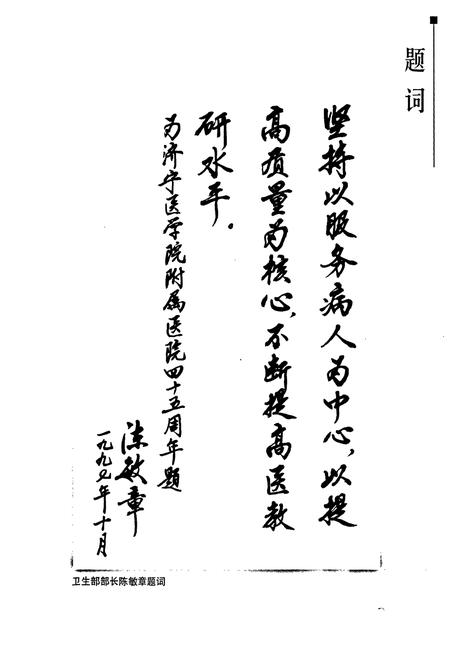 题词
坚持以服务病人为中心，以提
高质量为核心，不断提高医教
研水平。
为济宁医学院附属医院四十五周年题
陈敏章
一九九七年十月
卫生部部长陈敏章题词